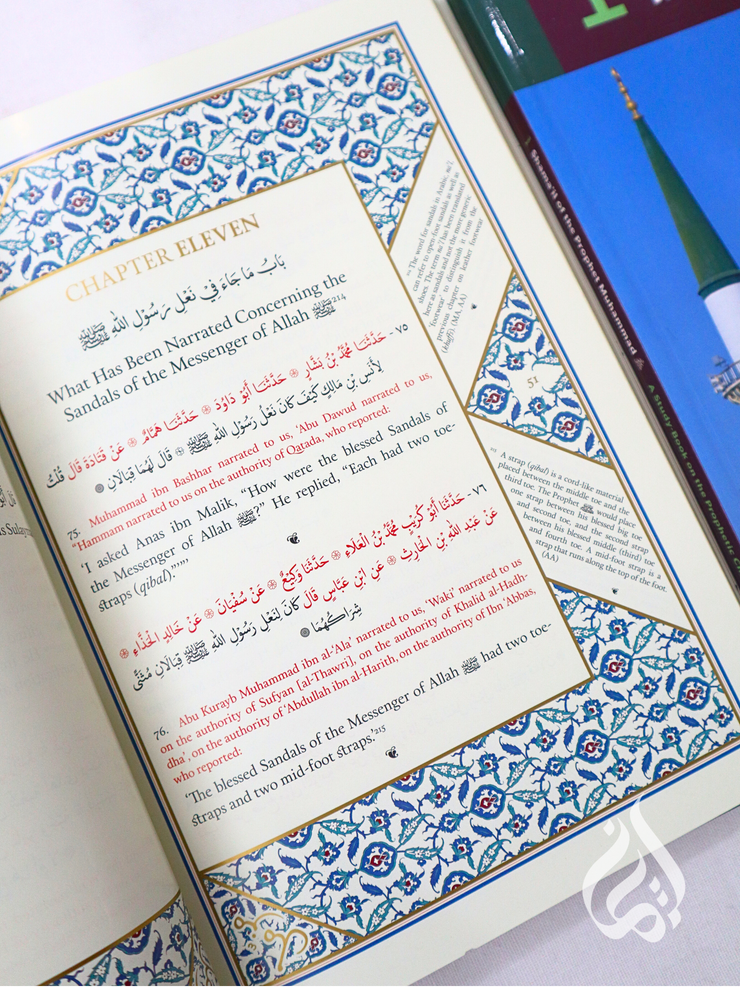 CHAPTER ELEVEN
بَابُ مَا جَاءَ فِيْ نَعْلِ رَسُوْلِ اللهِ ﷺ
What Has Been Narrated Concerning the
Sandals of the Messenger of Allah ﷺ214
٧٥- حَدَّثَنَا مُحَمَّدُ بْنُ بَشَّارٍ ۞ حَدَّثَنَا أَبُوْ دَاوُدَ ۞ حَدَّثَنَا هَمَّامٌ ۞ عَنْ قَتَادَةَ قَالَ قُلْتُ
لِأَنَسِ بْنِ مَالِكٍ كَيْفَ كَانَ نَعْلُ رَسُوْلِ اللهِ ﷺ ۞ قَالَ لَهُمَا قِبَالَانِ ۞
75. Muhammad ibn Bashhar narrated to us, ‘Abu Dawud narrated to us,
“Hammam narrated to us on the authority of Qatada, who reported:
‘I asked Anas ibn Malik, “How were the blessed Sandals of
the Messenger of Allah ﷺ?” He replied, “Each had two toe-
straps (qibal).”’”’
٧٦- حَدَّثَنَا أَبُوْ كُرَيْبٍ مُحَمَّدُ بْنُ الْعَلَاءِ ۞ حَدَّثَنَا وَكِيْعٌ ۞ عَنْ سُفْيَانَ ۞ عَنْ خَالِدٍ الْحَذَّاءِ ۞
عَنْ عَبْدِ اللهِ بْنِ الْحَارِثِ ۞ عَنِ ابْنِ عَبَّاسٍ قَالَ كَانَ لِنَعْلِ رَسُوْلِ اللهِ ﷺ قِبَالَانِ مُثَنًّى
شِرَاكُهُمَا ۞
76. Abu Kurayb Muhammad ibn al-‘Ala’ narrated to us, ‘Waki‘ narrated to us
on the authority of Sufyan [al-Thawri], on the authority of Khalid al-Hadh-
dha’, on the authority of ‘Abdullah ibn al-Harith, on the authority of Ibn ‘Abbas,
who reported:
‘The blessed Sandals of the Messenger of Allah ﷺ had two toe-
straps and two mid-foot straps.’215
214 The word for sandals in Arabic, na‘l,
can refer to open-foot sandals as well as
shoes. The term na‘l has been translated
here as sandals and not the more generic
‘footwear’ to distinguish it from the
previous chapter on leather footwear
(khuff). (MA, AA)
51
215 A strap (qibal) is a cord-like material
placed between the middle toe and the
third toe. The Prophet ﷺ would place
one strap between his blessed big toe
and second toe, and the second strap
between his blessed middle (third) toe
and fourth toe. A mid-foot strap is a
strap that runs along the top of the foot.
(AA)
Shama'il of the Prophet Muhammad ﷺ
A Study-Book on the Prophetic